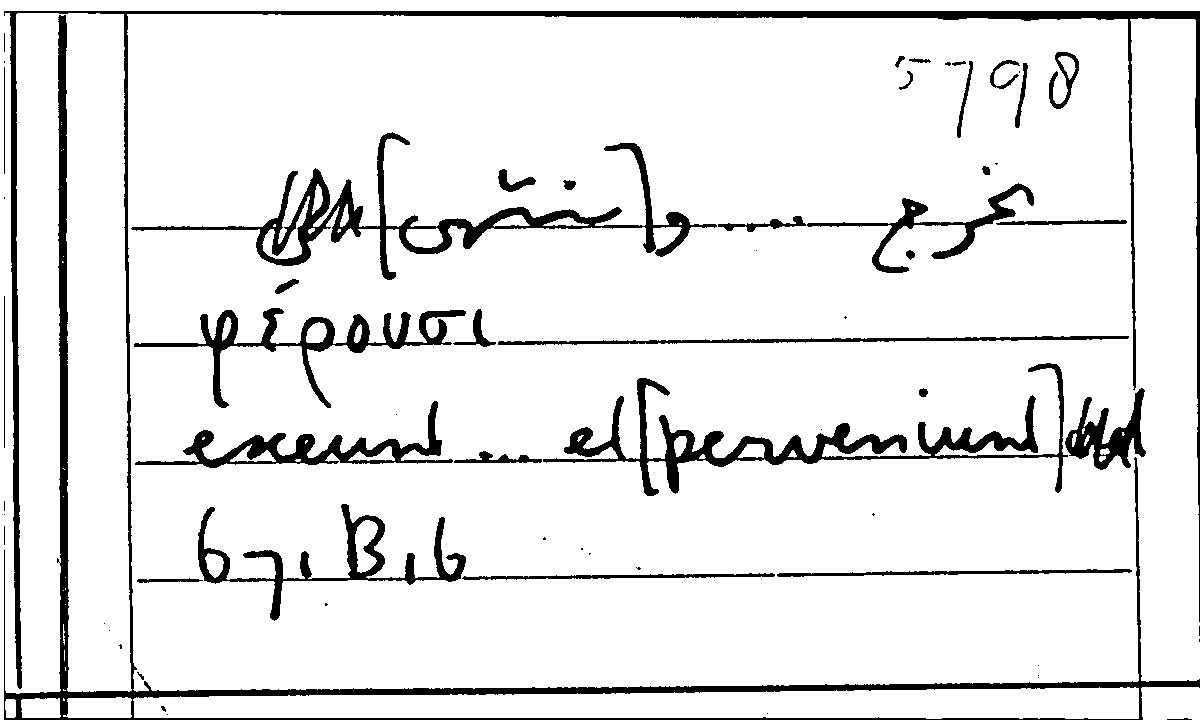 5798
تخرج .... و
φέρουσι
exeunt ... et [perveniunt]
67, B, 6